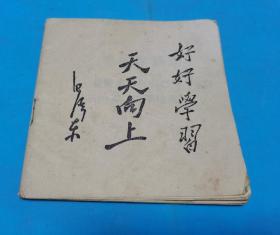 好好學習
天天向上
毛澤东